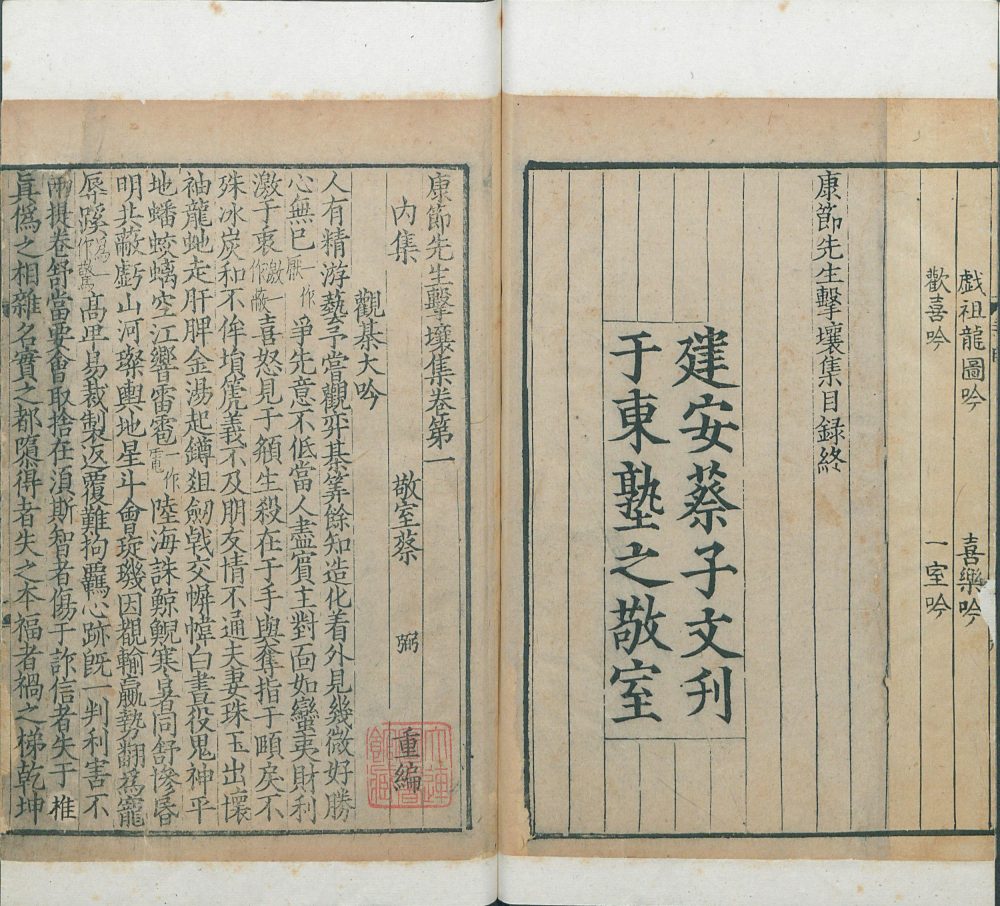 戲祖龍圖吟 喜樂吟
歡喜吟 一室吟
康節先生擊壤集目録終
建安蔡子文刋
于東塾之敬室
康節先生擊壤集卷第一
內集 敬室蔡 弼 重編
觀棊大吟
人有精游藝予嘗觀弈棊筭餘知造化着外見幾微好勝
心無已一作厭爭先意不低當人盡賔主對面如蠻夷財利
激于衷激一作蔽喜怒見于頯生殺在于手與奪指于頤戾不
殊冰炭和不侔塤箎義不及朋友情不通夫妻珠玉出壤
袖龍虵走肝脾金湯起鐏俎劒戟交幈幃白晝役鬼神平
地蟠蛟螭空江響雷雹一作電陸海誅鯨鯢寒暑同舒慘昏
明共蔽虧山河璨輿地星斗會璇璣因覩輸贏勢翻爲寵
辱蹊爲一作驚高卑易裁製返覆難拘羈心跡旣一判利害不
兩提卷舒當要會取捨在湏斯智者傷于詐信者失于椎
眞僞之相雜名實之都隳得者失之本福者禍之梯乾坤